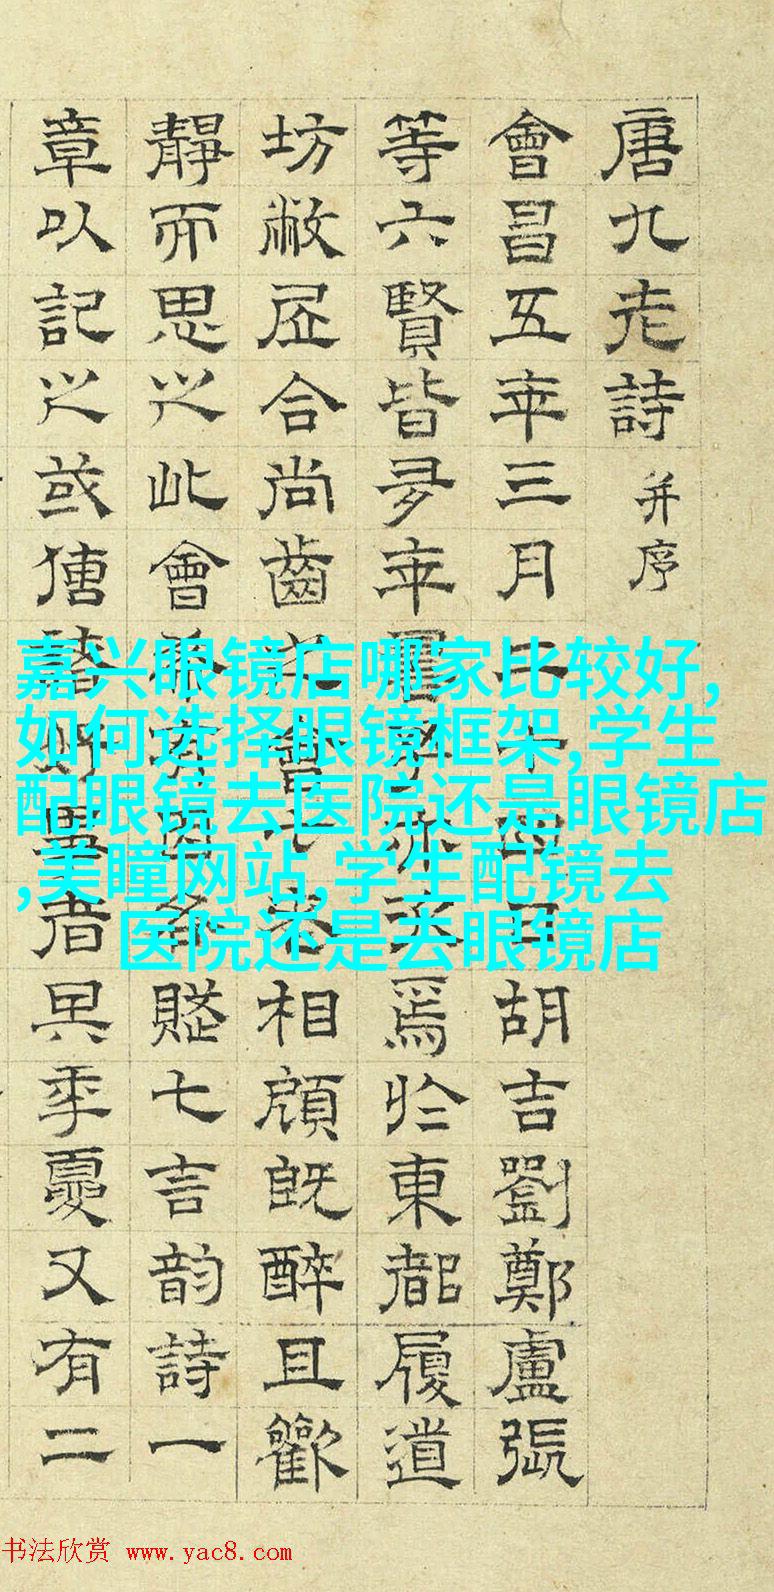 唐九老詩 并序
會昌五年三月二十四日胡吉劉鄭盧張
等六賢皆多年壽予亦次焉於東都履道
坊敝居合尚齒之會七老相顧既醉且歡
靜而思之此會希有因各賦七言韵詩一
章以記之或傳諸好事者其年夏又有二
嘉兴眼镜店哪家比较好,
如何选择眼镜框架,学生
配眼镜去医院还是眼镜店
,美瞳网站,学生配镜去
医院还是去眼镜店
书法欣赏 www.yac8.com